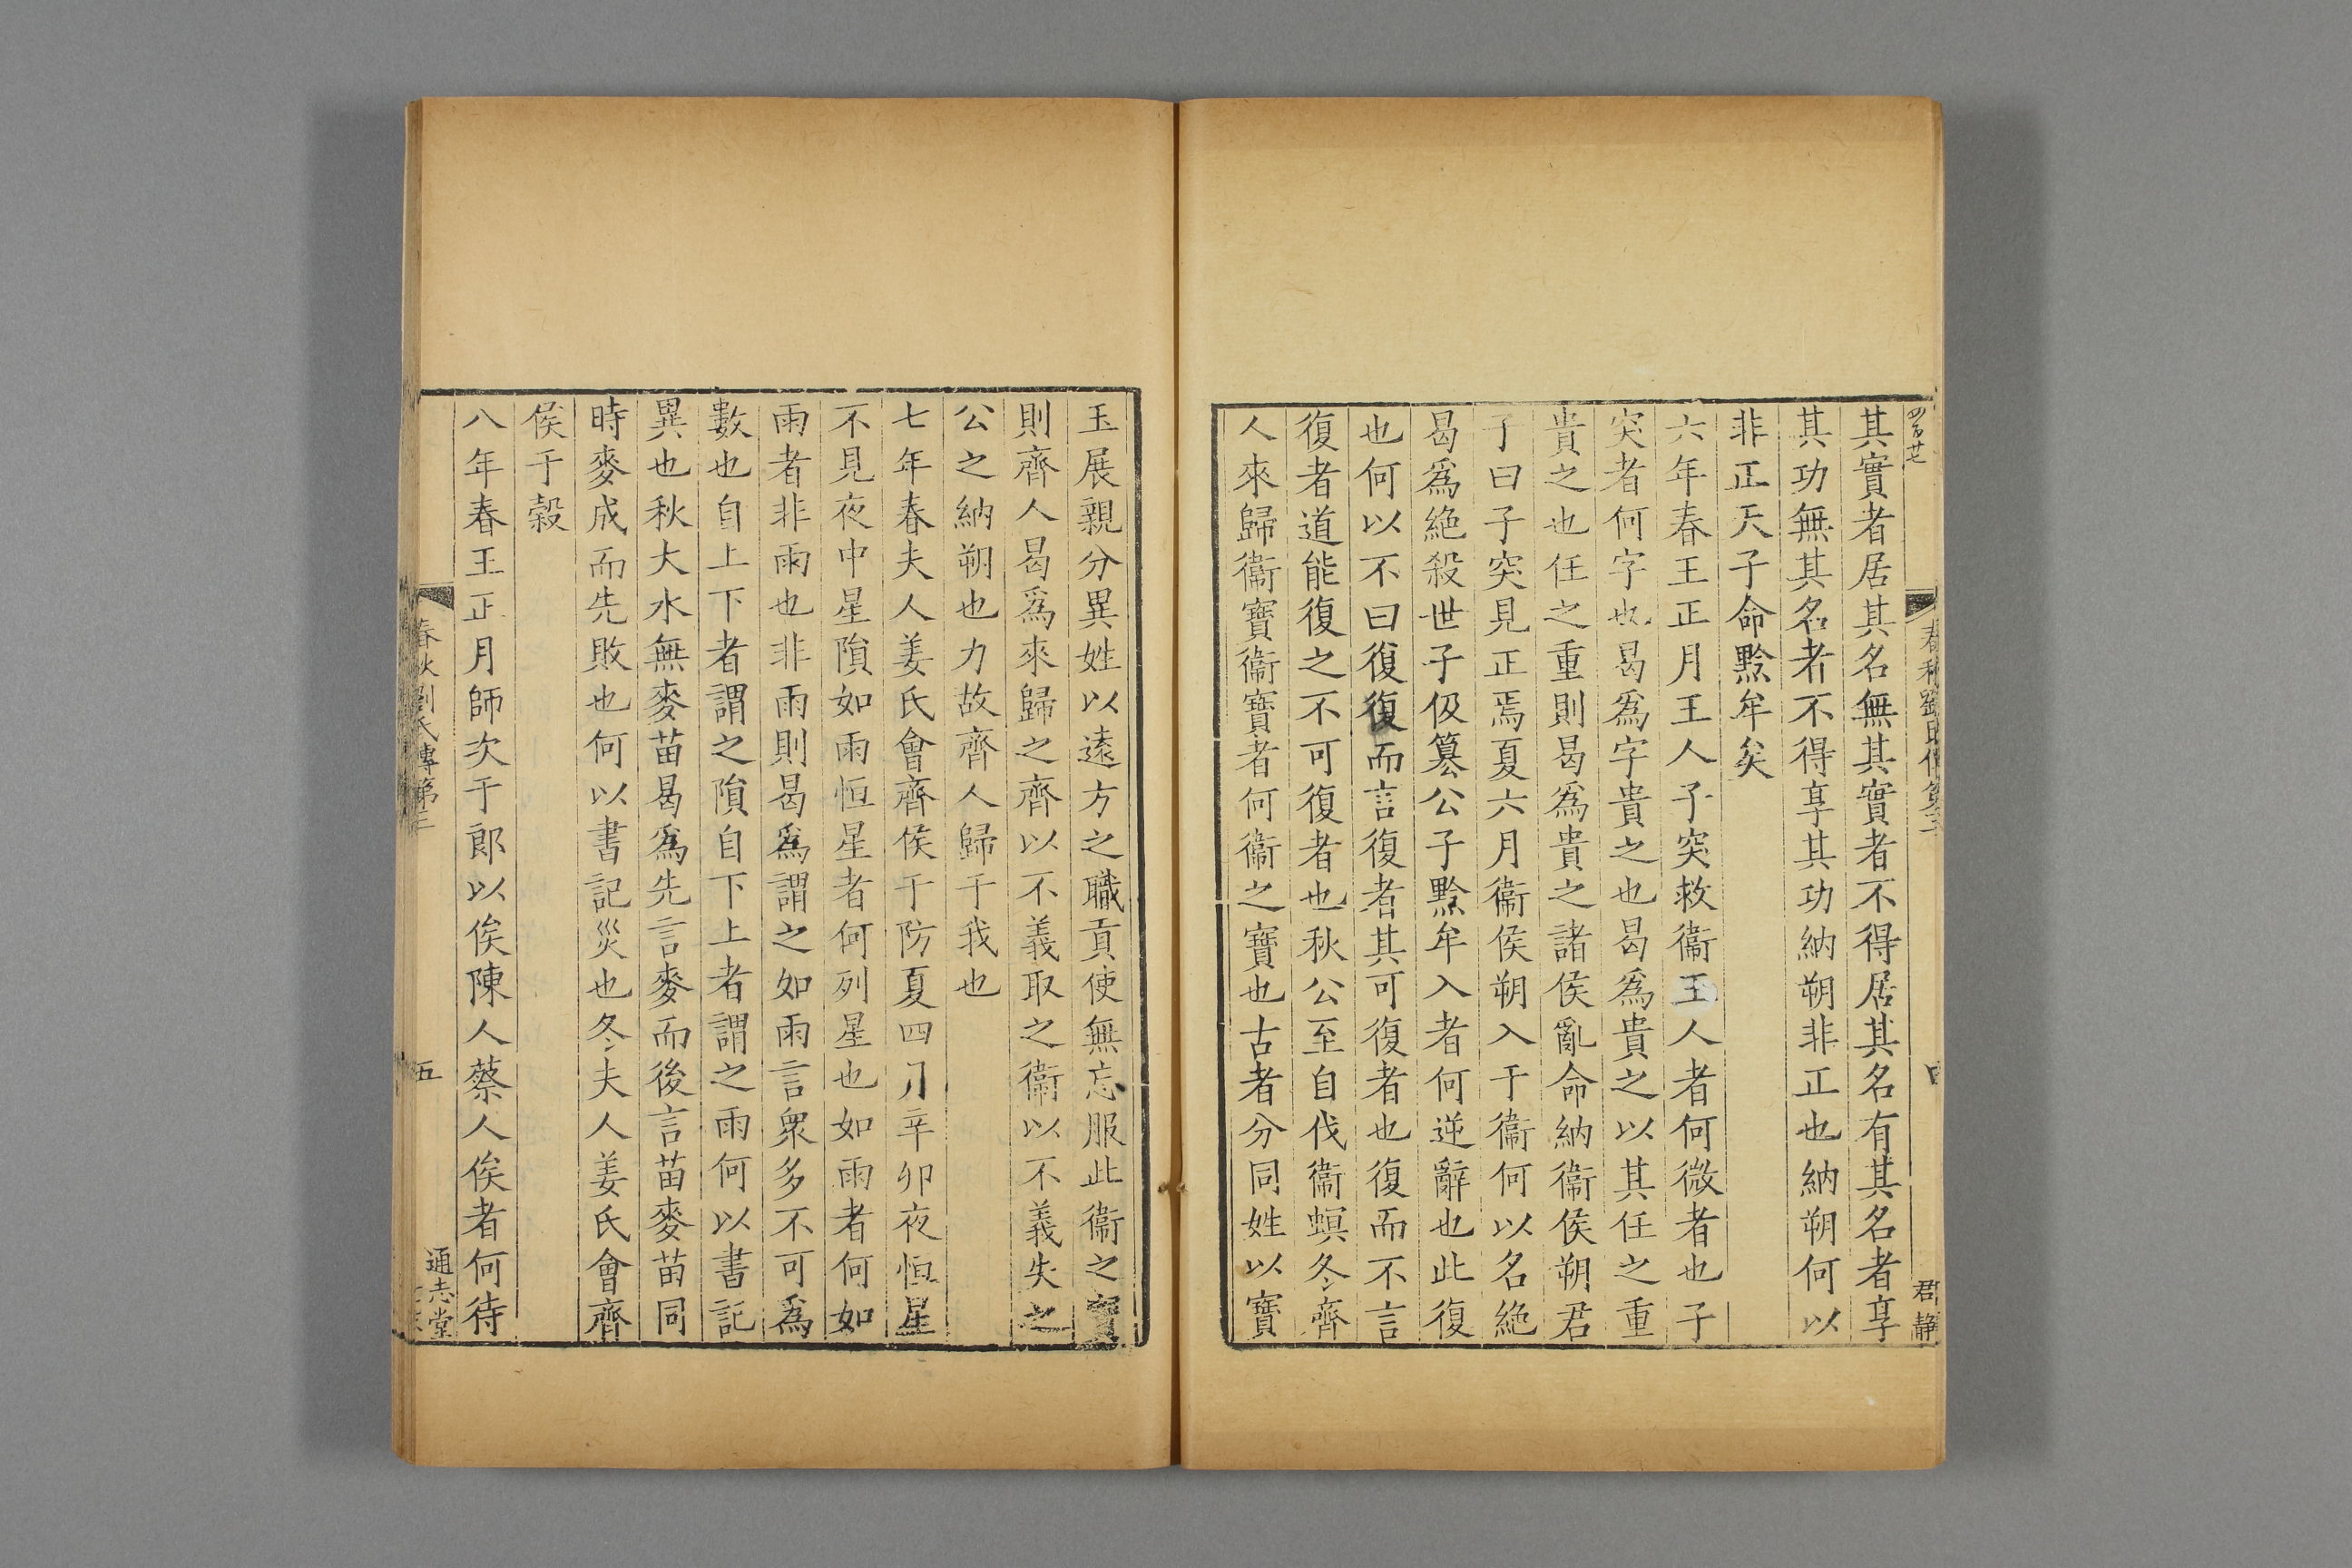 其實者居其名無其實者不得居其名有其名者享
其功無其名者不得享其功納朔非正也納朔何以
非正天子命黔牟矣
六年春王正月王人子突救衞王人者何微者也子
突者何字也曷爲字貴之也曷爲貴之以其任之重
貴之也任之重則曷爲貴之諸侯亂命納衞侯朔君
子曰子突見正焉夏六月衞侯朔入于衞何以名絶
曷爲絶殺世子伋簒公子黔牟入者何逆辭也此復
也何以不曰復復而言復者其可復者也復而不言
復者道能復之不可復者也秋公至自伐衞螟冬齊
人來歸衞寶衞寶者何衞之寶也古者分同姓以寶
玉展親分異姓以遠方之職貢使無忘服此衞之寶
則齊人曷爲來歸之齊以不義取之衞以不義失之
公之納朔也力故齊人歸于我也
七年春夫人姜氏會齊侯于防夏四月辛卯夜恒星
不見夜中星隕如雨恒星者何列星也如雨者何如
雨者非雨也非雨則曷爲謂之如雨言衆多不可爲
數也自上下者謂之隕自下上者謂之雨何以書記
異也秋大水無麥苗曷爲先言麥而後言苗麥苗同
時麥成而先敗也何以書記災也冬夫人姜氏會齊
侯于榖
八年春王正月師次于郎以俟陳人蔡人俟者何待
春秋劉氏傳第三
五
通志堂
君静